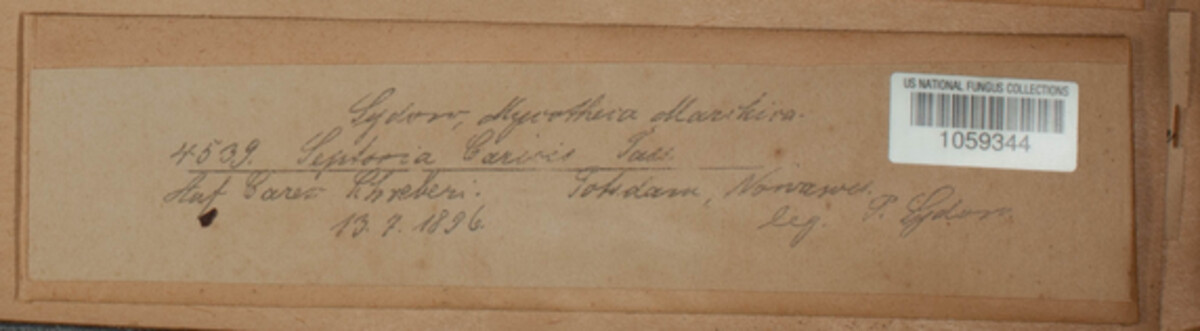 Sydow, Mycotheca Marchica.
4539. Septoria Caricis Pass.
Auf Carex Schreberi. Potsdam, Nowawes.
13. 7. 1896. leg. P. Sydow.
US NATIONAL FUNGUS COLLECTIONS
1059344